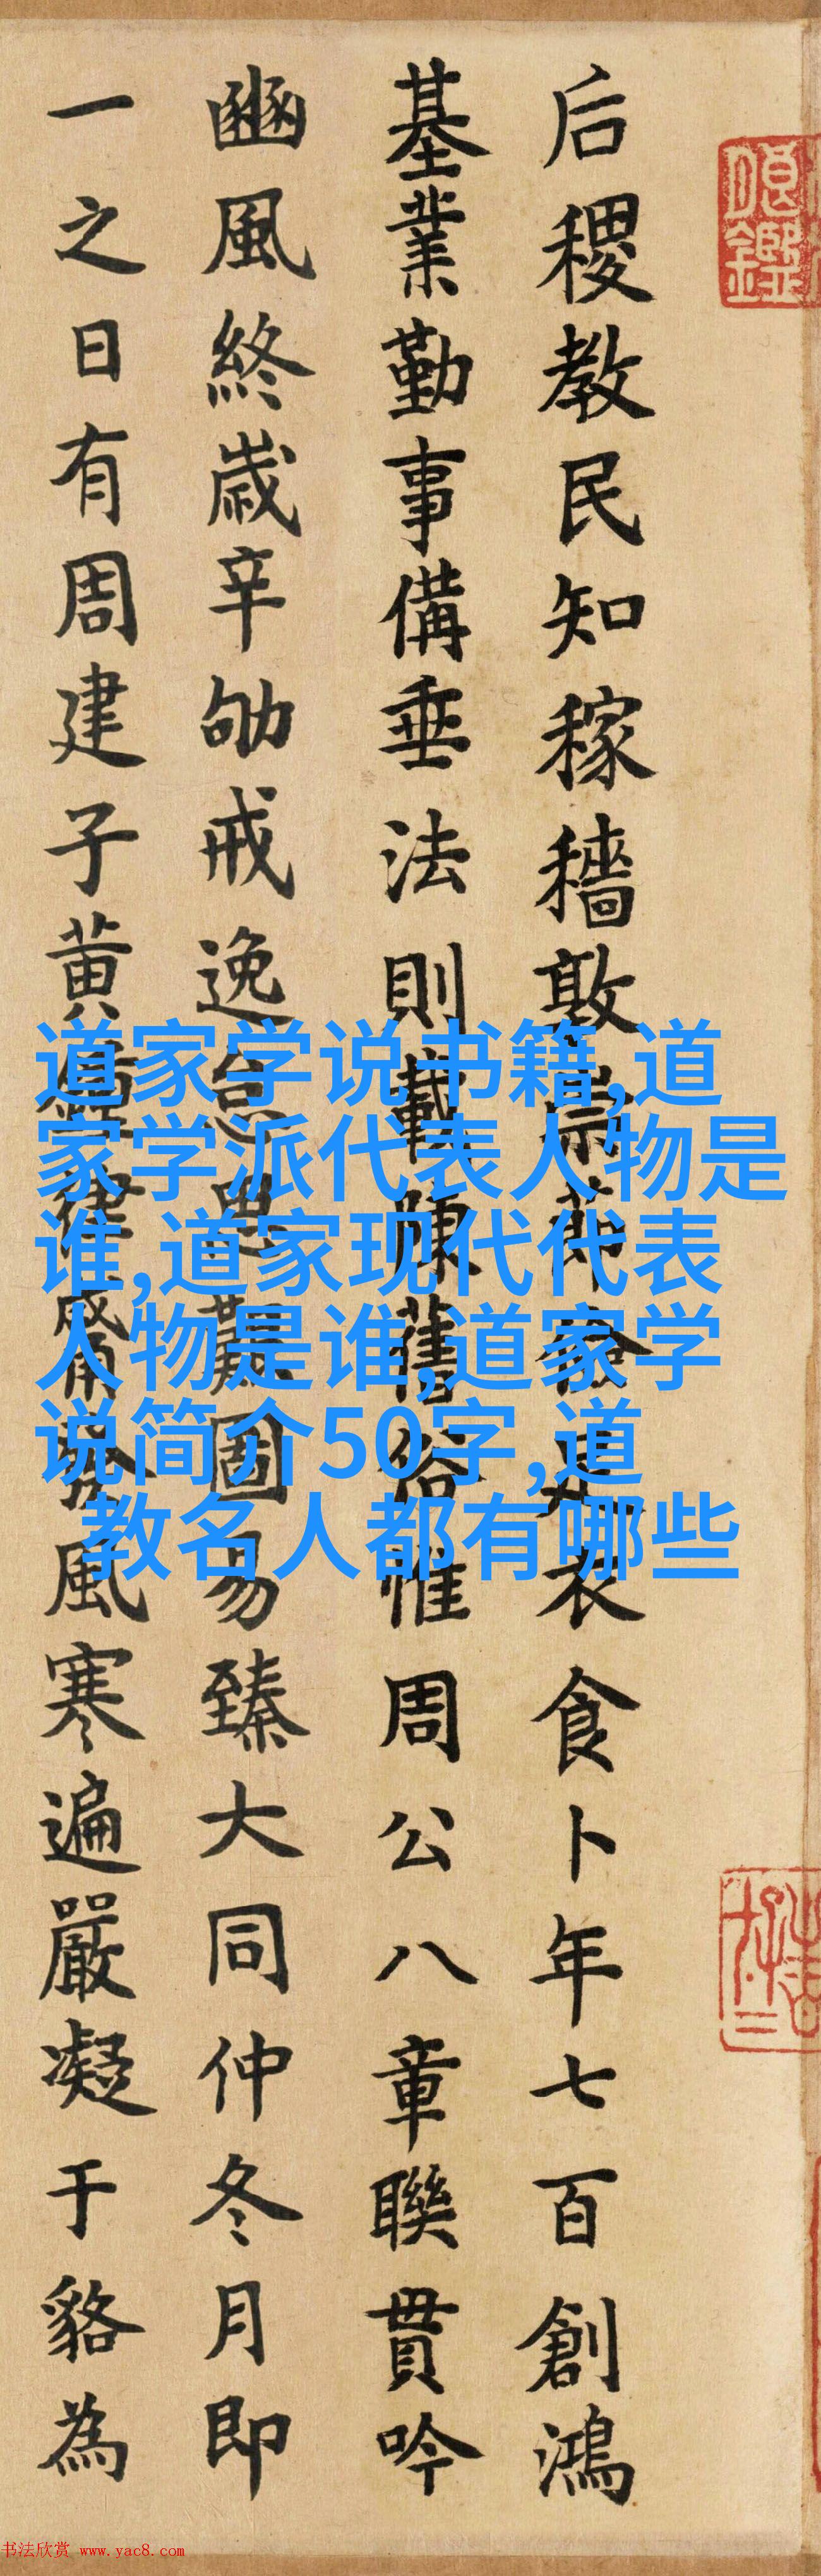 后稷教民知稼穡敦崇
衣食卜年七百創鴻
基業勤事備垂法則載陳舊俗惟周公八章聯貫吟
豳風終歲辛劬戒逸
圖易臻大同仲冬月即
一之日有周建子黃鍾律
風寒遍嚴凝于貉為
道家学说书籍,道
家学派代表人物是
谁,道家现代代表
人物是谁,道家学
说简介50字,道
教名人都有哪些
书法欣赏 www.yac8.com